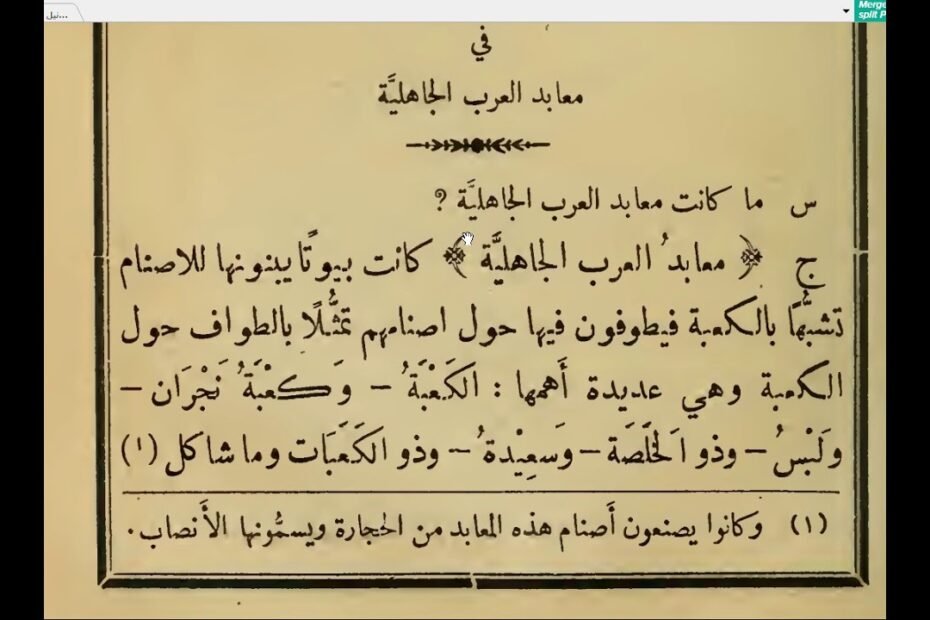 نيل...
Merge
split P
في
معابد العرب الجاهليَّة
س ما كانت معابد العرب الجاهليَّة ؟
ج ﴿ معابدُ العرب الجاهليَّة ﴾ كانت بيوتًا يبنونها للاصنام
تشبُّهًا بالكعبة فيطوفون فيها حول اصنامهم تمثُّلًا بالطواف حول
الكعبة وهي عديدة أَهمها : الكَعْبَةُ – وَكعْبَةُ نَجْرَان –
ولَبْسُ – وذو الخَلَصَة – وسَعِيْدةُ – وذو الكَعَبَات وما شاكل (١)
(١) وكانوا يصنعون أَصنام هذه المعابد من الحجارة ويسمُّونها الأَنصاب.